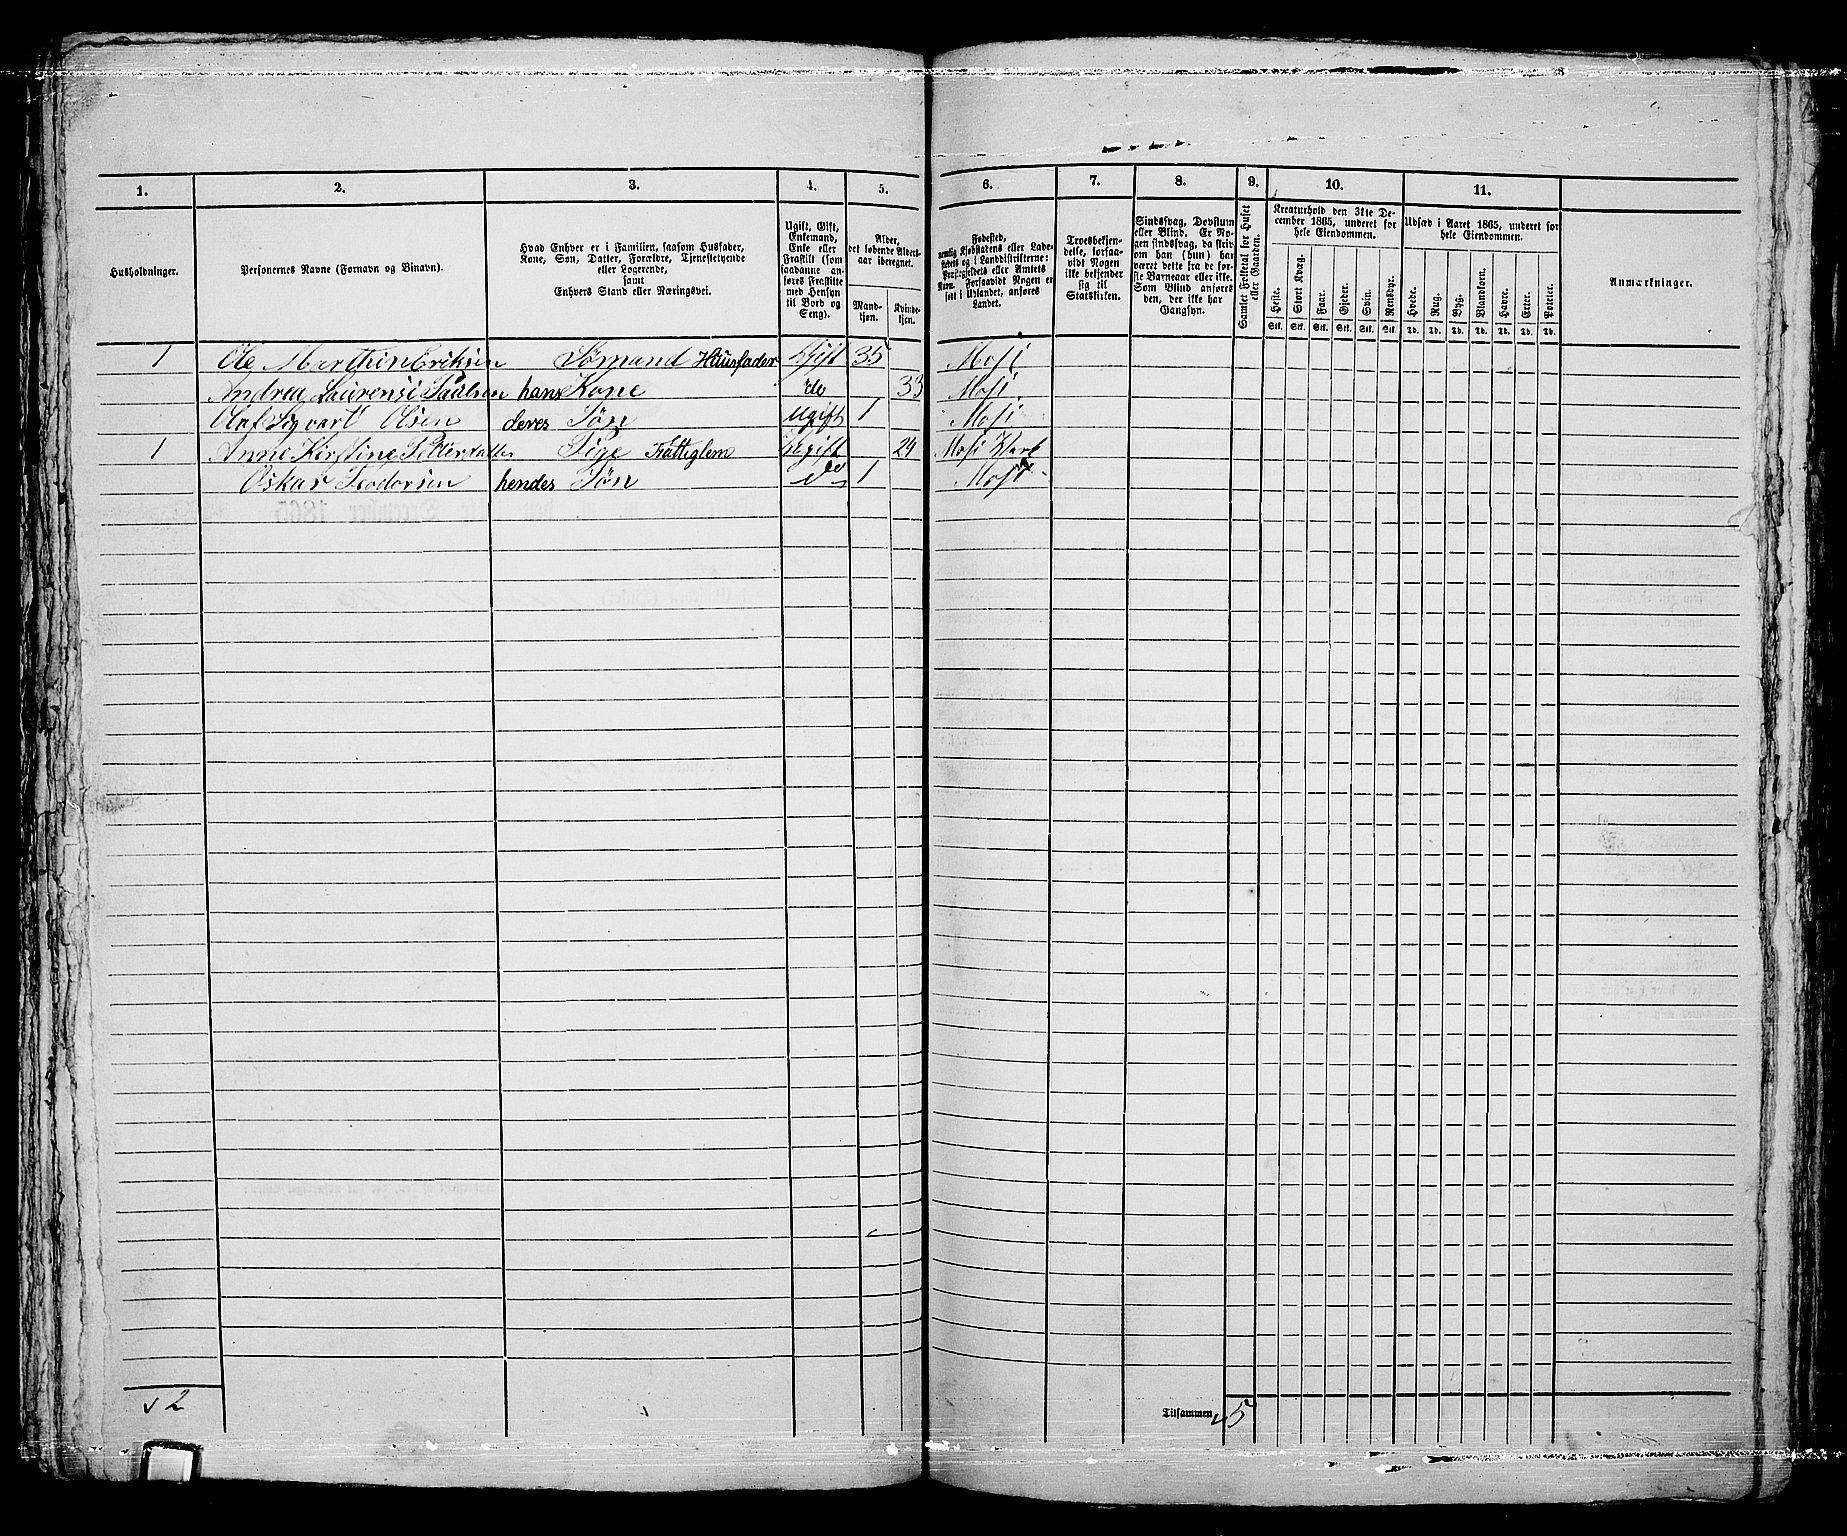 1. 2. 3. 4. 5. 6. 7. 8. 9. 10. 11.
Husholdninger.
Personernes Navne (Fornavn og Binavn).
Hvad Enhver er i Familien, saasom Husfader,
Kone, Søn, Datter, Forældre, Tjenestetyende
eller Logerende,
samt
Enhvers Stand eller Næringsvei.
Ugift, Gift,
Enkemand,
Enke eller
Fraskilt (som
saadanne an-
føres Fraskilte
med Hensyn
til Bord og
Seng).
Alder,
det løbende Alders-
aar iberegnet.
Mand-
kjøn.
Kvinde-
kjøn.
Fødested,
nemlig Kjøbstadens eller Lade-
stedets og i Landdistrikterne:
Præstegjeldets eller Amtets
Navn. Forsaavidt Nogen er
født i Udlandet, anføres
Landet.
Troesbekjen-
delse, forsaa-
vidt Nogen
ikke bekjender
sig til
Statskirken.
Sindssvag, Døvstum
eller Blind. Er No-
gen sindssvag, da skriv
om han (hun) har
været dette fra de før-
ste Barneaar eller ikke.
Som Blind anføres
den, der ikke har
Gangsyn.
Samlet Folketal for Huset
eller Gaarden.
Kreaturhold den 31te De-
cember 1865, underet for
hele Eiendommen.
Heste. Stort Kvæg. Faar. Gjeder. Svin. Rensdyr.
Stk. Stk. Stk. Stk. Stk. Stk.
Udsæd i Aaret 1865, underet for
hele Eiendommen.
Hvede. Rug. Byg. Blandkorn. Havre. Erter. Poteter.
Td. Td. Td. Td. Td. Td. Td.
Anmærkninger.
1 Ole Marthin Eriksen Sømand Huusfader Gift 35 Mosi
Andrea Laurensi Paulsen hans Kone do 33 Mosi
Olaf Sigvart Olsen deres Søn Ugift 1 Mosi
1 Anne Kirstine Pedersdatter Pige Fattiglem Ugift 24 Mosi
Oskar Teodorsen hendes Søn do 1 Mosi
2
Tilsammen 5